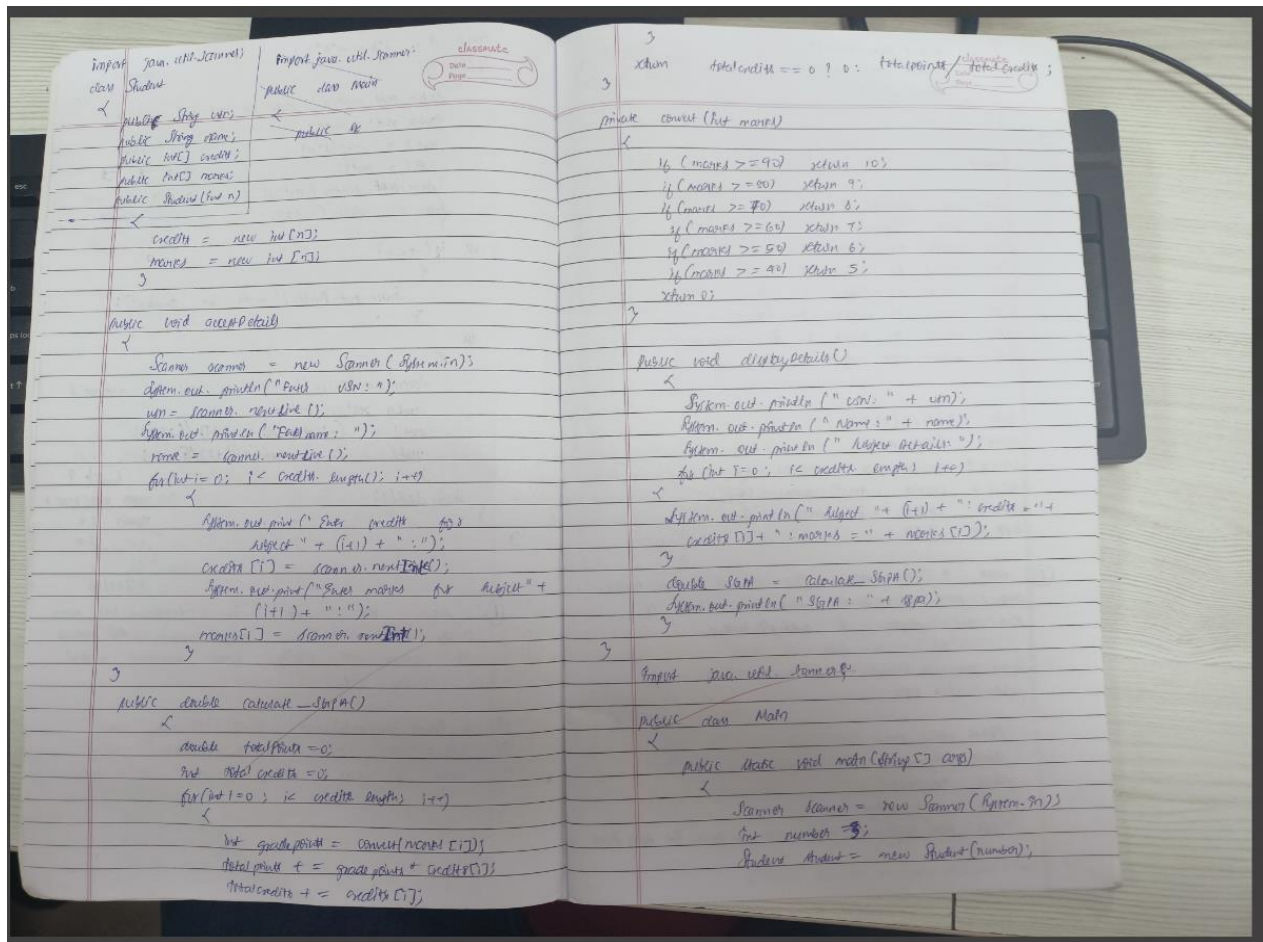 import java.util.Scanner;
class Student
{
public String usn;
public String name;
public int[] credits;
public int[] marks;
public Student(int n)
{
credits = new int[n];
marks = new int[n];
}
public void acceptDetails
{
Scanner scanner = new Scanner(System.in);
System.out.println("Enter USN: ");
usn = scanner.nextLine();
System.out.println("Enter name: ");
name = scanner.nextLine();
for(int i=0; i< credits.length(); i++)
{
System.out.print("Enter credits for
subject" + (i+1) + ":");
credits[i] = scanner.nextInt();
System.out.print("Enter marks for subject" +
(i+1) + ":");
marks[i] = scanner.nextInt();
}
}
public double calculate_SGPA()
{
double totalPoints =0;
int total credits =0;
for(int i=0; i< credits length; i++)
{
int gradepoints = convert(marks[i]);
total points += grade points * credits[i];
totalcredits += credits[i];
import java.util.Scanner.
public class Main
{
public
classmate
Date
Page
}
return totalcredits == 0 ? 0: totalpoints / total credits;
}
classmate
Date
Page
private convert (int marks)
{
if (marks >=90) return 10;
if (marks >=80) return 9;
if (marks >= 70) return 8;
if (marks >=60) return 7;
if (marks >=50) return 6;
if (marks >= 40) return 5;
return 0;
}
public void displayDetails()
{
System.out.println(" USN: " + usn);
System.out.println(" Name: " + name);
System.out.println(" Subject Details: ");
for (int i=0; i< credits length; i++)
{
System.out.println(" Subject "+ (i+1) + ": credits = "+
credits[i]+ ": marks = " + marks[i]);
}
double SGPA = calculate_SGPA();
System.out.println(" SGPA : " + sgpa);
}
}
import java.util.Scanner;
public class Main
{
public static void main(String[] args)
{
Scanner Scanner = new Scanner(System.in);
int number =
Student student = new Student(number);
esc